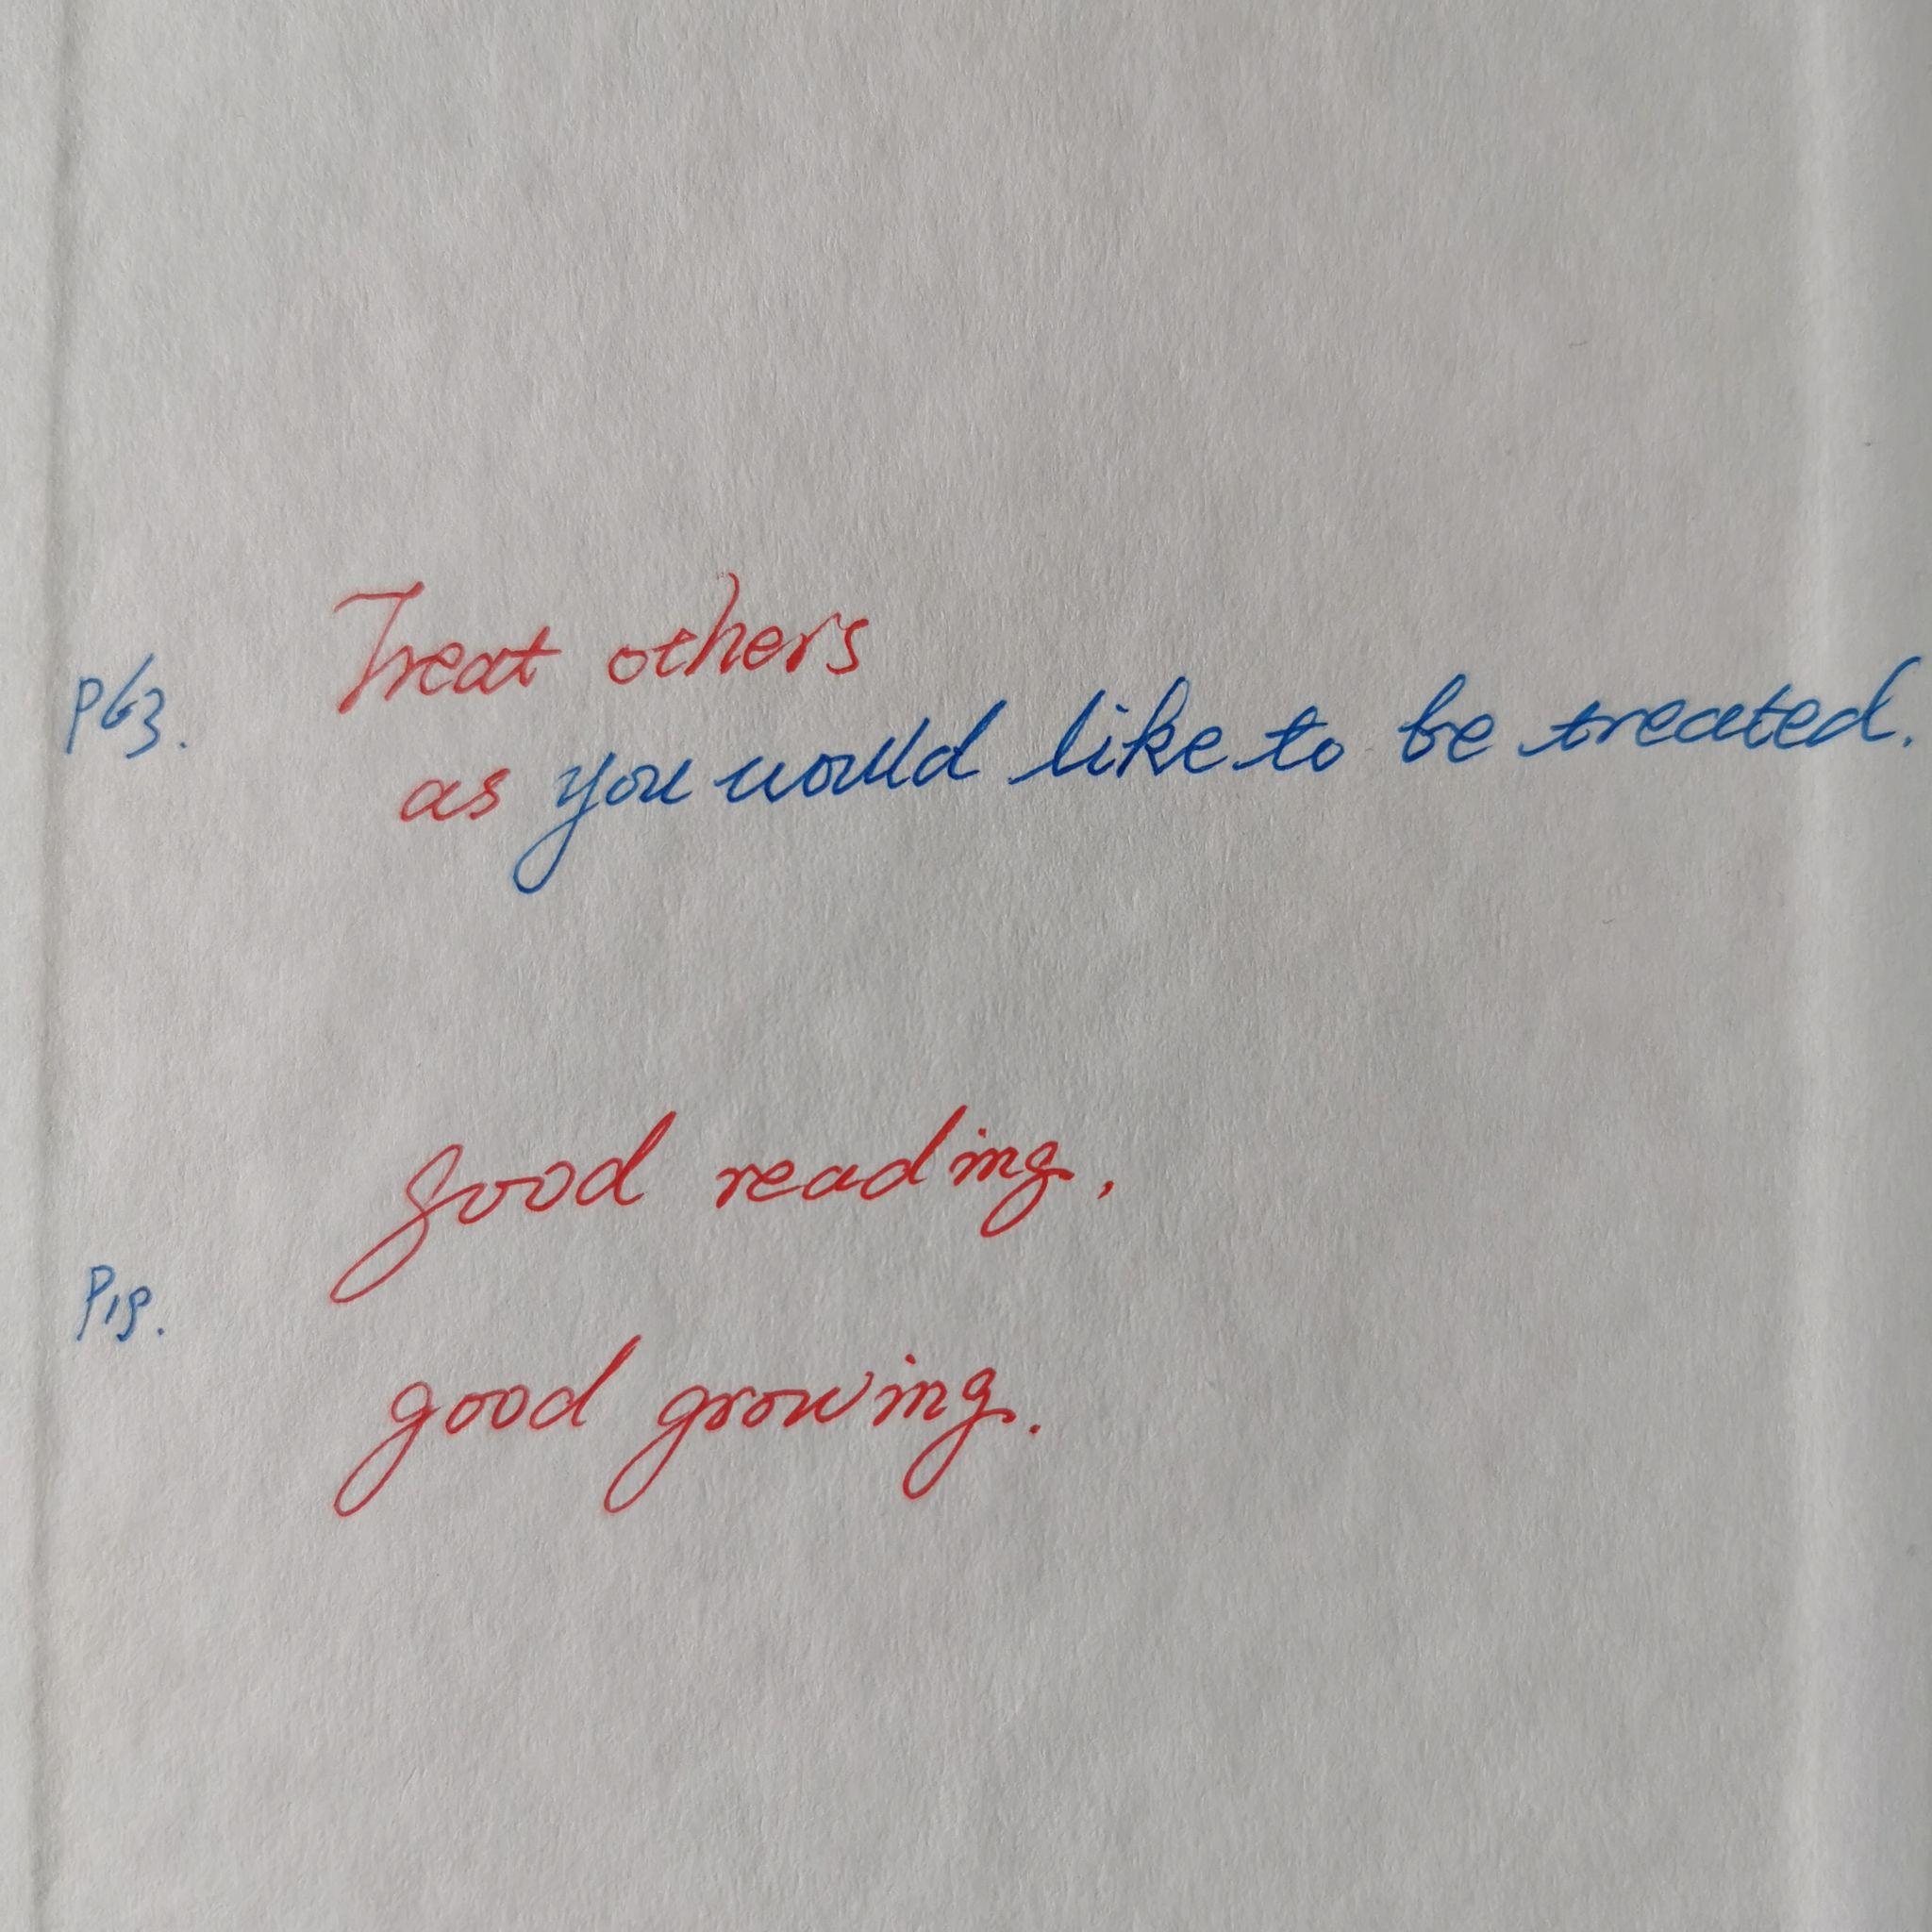 Treat others
P63.
as you would like to be treated.
good reading,
P19.
good growing.